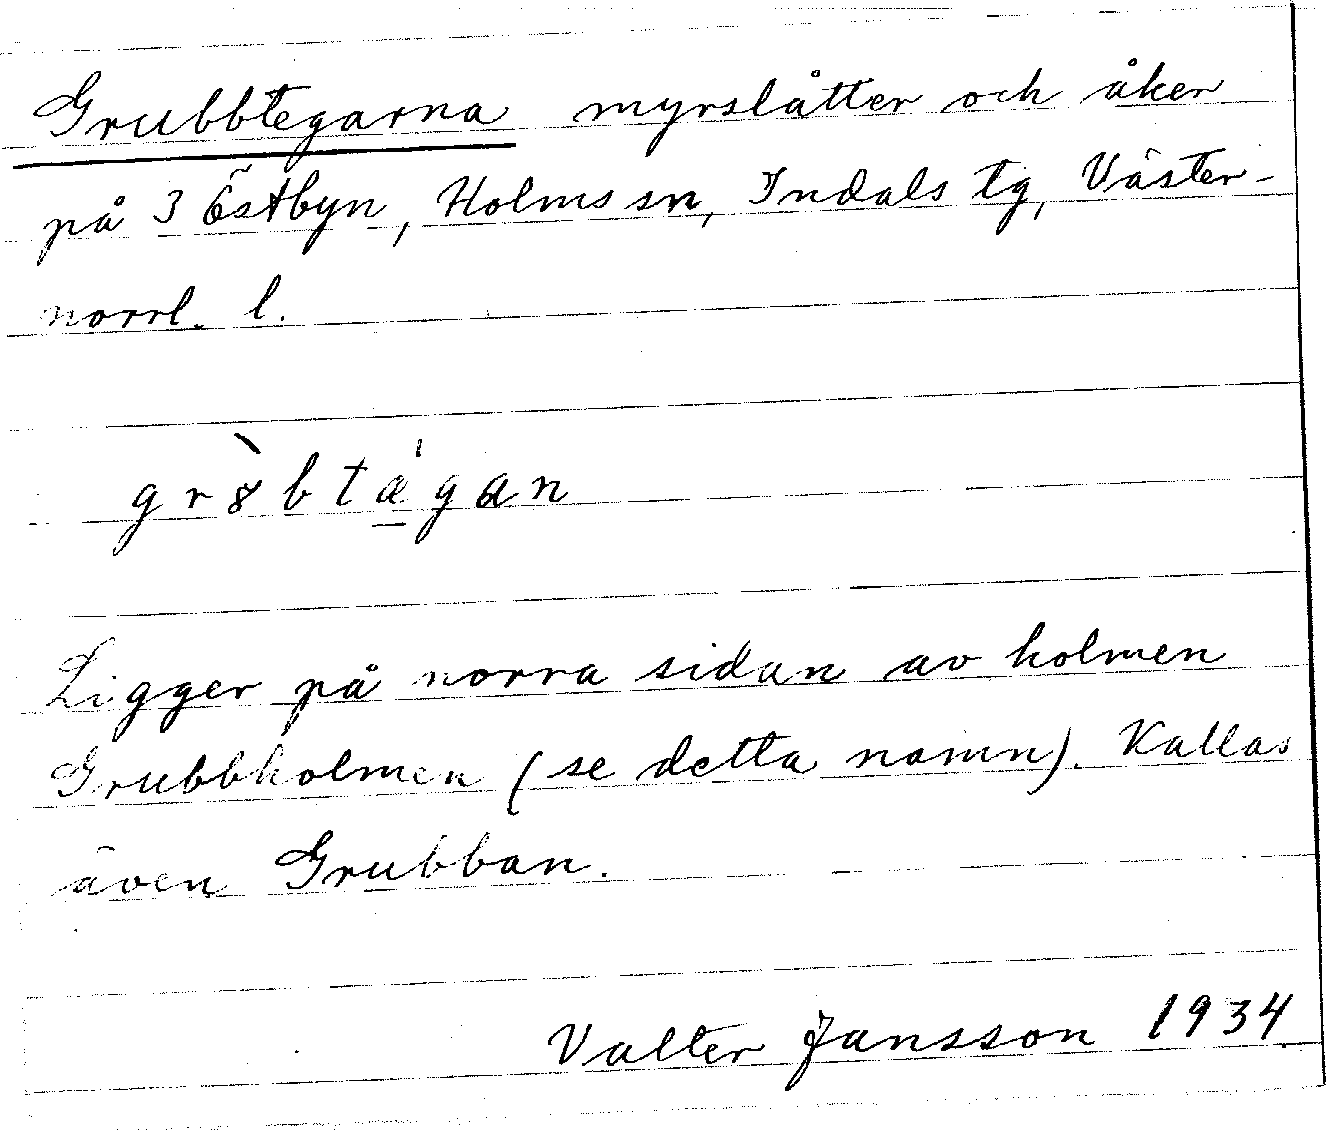 Grubbtegarna myrslåtter och åker
på 3 Östbyn, Holms sn, Indals tg, Väster-
norrl. l.
gr8̀btæ̠'gan
Ligger på norra sidan av holmen
Grubbholmen (se detta namn). Kallas
även Grubban.
Valter Jansson 1934